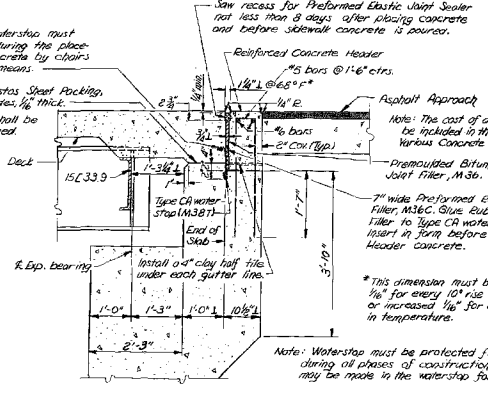 Saw recess for Preformed Elastic Joint Sealer
not less than 8 days after placing concrete
and before sidewalk concrete is poured.
waterstop must
during the place-
crete by chairs
means.
Reinforced Concrete Header
1¼"⊥ @ 68° F*
#5 bars @ 1'-6" ctrs.
Sheet Packing,
des, 1/16" thick.
hall be
ed.
2¾"
¼" R.
Asphalt Approach
Note: The cost of
be included in the
Various Concrete
#6 bars
2" Cov. (Typ.)
Deck
15[33.9
1'-3¼"⊥
1"
Premoulded Bitum
Joint Filler, M36.
Type CA water
stop (M387)
7" wide Preformed E
Filler, M36C. Glue Rub
Filler to Type CA water
Insert in form before
Header concrete.
1'-7"
3'-10"
End of
Slab
℄ Exp. bearing
Install a 4" clay half tile
under each gutter line.
*This dimension must b
1/16" for every 10° rise
or increased 1/16" for
in temperature.
1'-0"
1'-3"
1'-0"⊥
10½"⊥
2'-3"
Note: Waterstop must be protected f
during all phases of construction
may be made in the waterstop fo